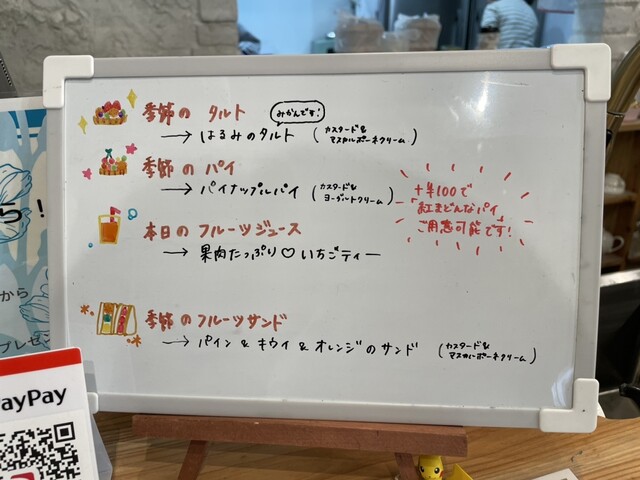 季節の タルト
みかんです!
→ はるみのタルト (カスタード&
マスカルポーネクリーム)
季節の パイ
→ パイナップルパイ (カスタード&
ヨーグルトクリーム)
+¥100で
「紅まどんなパイ」
ご用意可能です!
本日のフルーツジュース
→ 果肉たっぷり♡いちごティー
季節のフルーツサンド
→ パイン & キウイ & オレンジのサンド (カスタード&
マスカルポーネクリーム)
ら!
から
プレゼン
ayPay